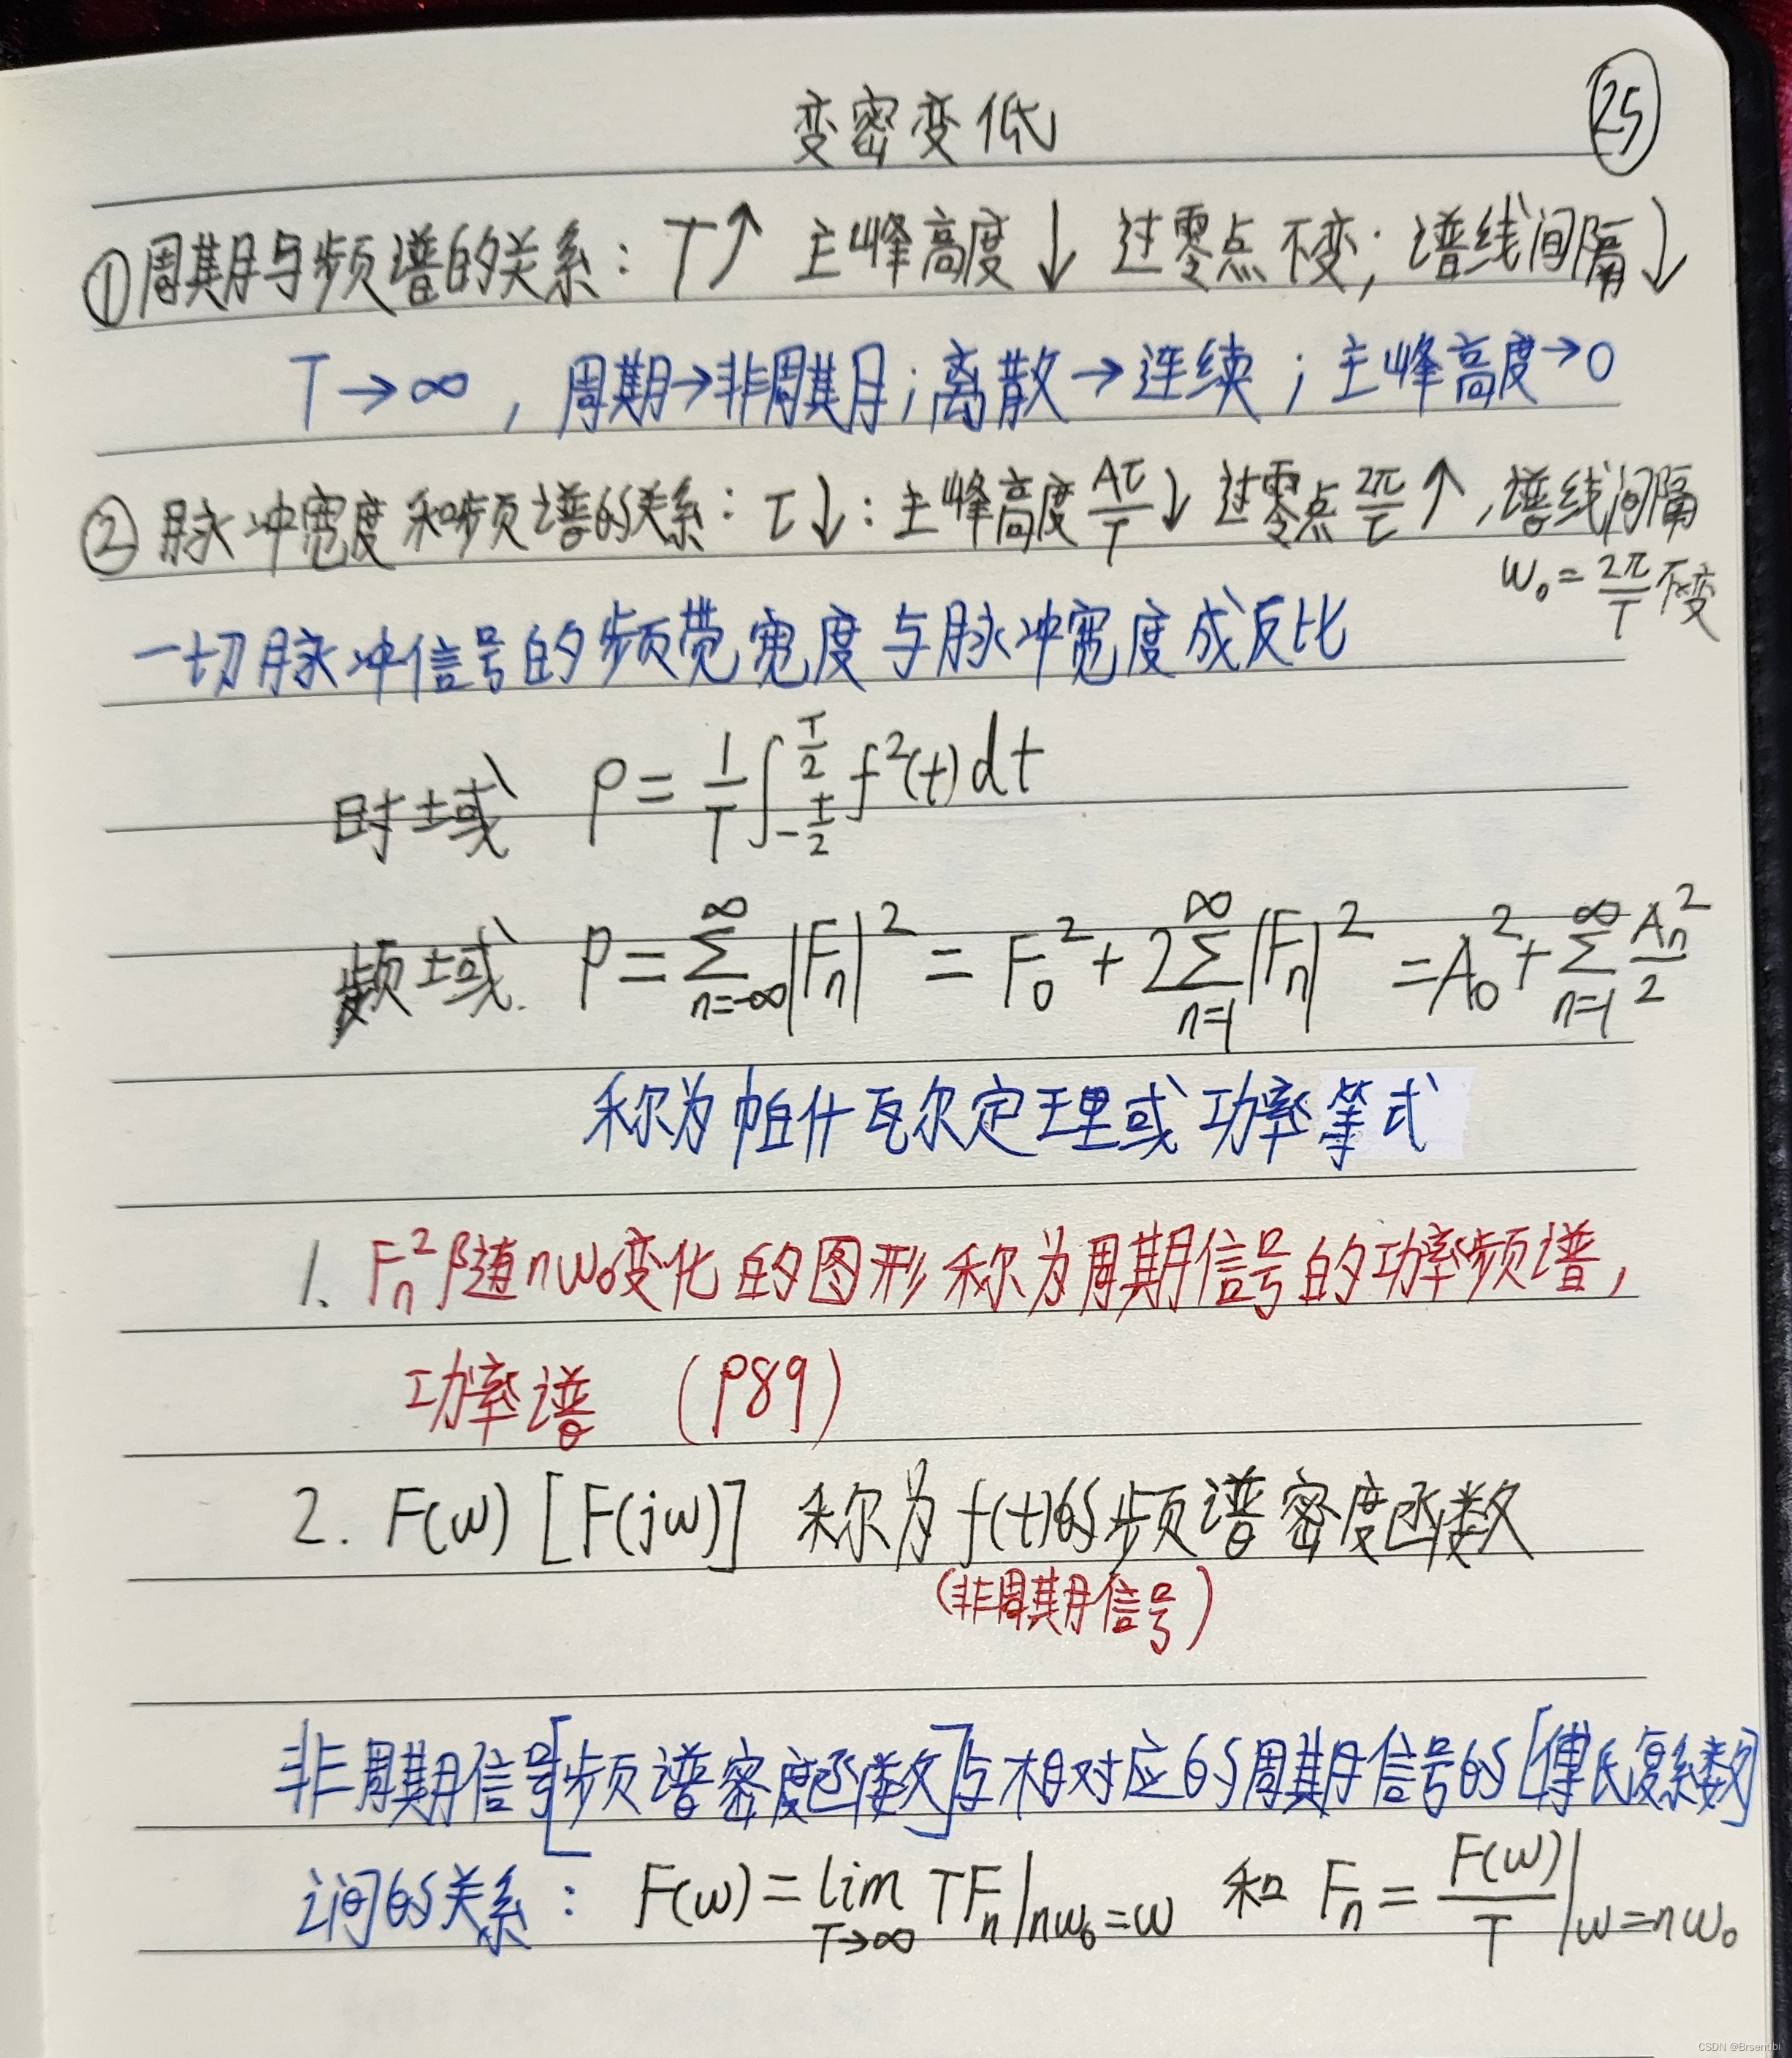 变密变低
25
①周期与频谱的关系：T↑ 主峰高度↓ 过零点不变；谱线间隔↓
T→∞，周期→非周期；离散→连续；主峰高度→0
②脉冲宽度和频谱的关系：τ↓：主峰高度 Aτ/T↓ 过零点 2π/τ↑，谱线间隔
ω₀=2π/T不变
一切脉冲信号的频带宽度与脉冲宽度成反比
时域 P=1/T∫_{-T/2}^{T/2} f²(t)dt
频域 P=∑_{n=-∞}^{∞}|Fn|²=F₀²+2∑_{n=1}^{∞}|Fn|²=A₀²+∑_{n=1}^{∞}An²/2
称为帕什瓦尔定理或功率等式
1. Fn²随nω₀变化的图形称为周期信号的功率频谱，
功率谱 (P89)
2. F(ω) [F(jω)] 称为f(t)的频谱密度函数
(非周期信号)
非周期信号[频谱密度函数]与相对应的周期信号的[傅氏复系数]
之间的关系：F(ω)=lim_{T→∞} TFn|nω₀=ω 和 Fn=F(ω)/T|ω=nω₀
CSDN @Brsentibi